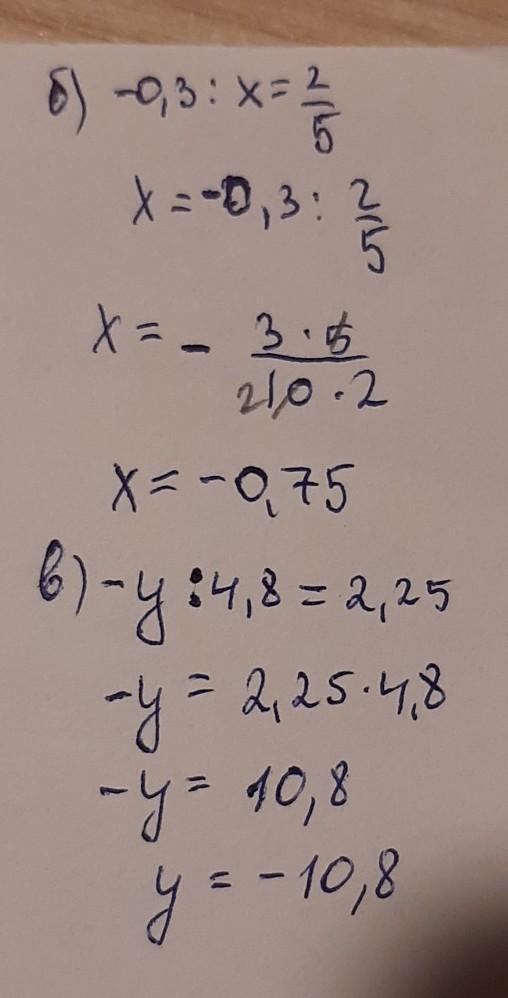 б) -0,3 : x = 2/5
x = -0,3 : 2/5
x = - 3·5/10·2
x = -0,75
в) -y : 4,8 = 2,25
-y = 2,25·4,8
-y = 10,8
y = -10,8